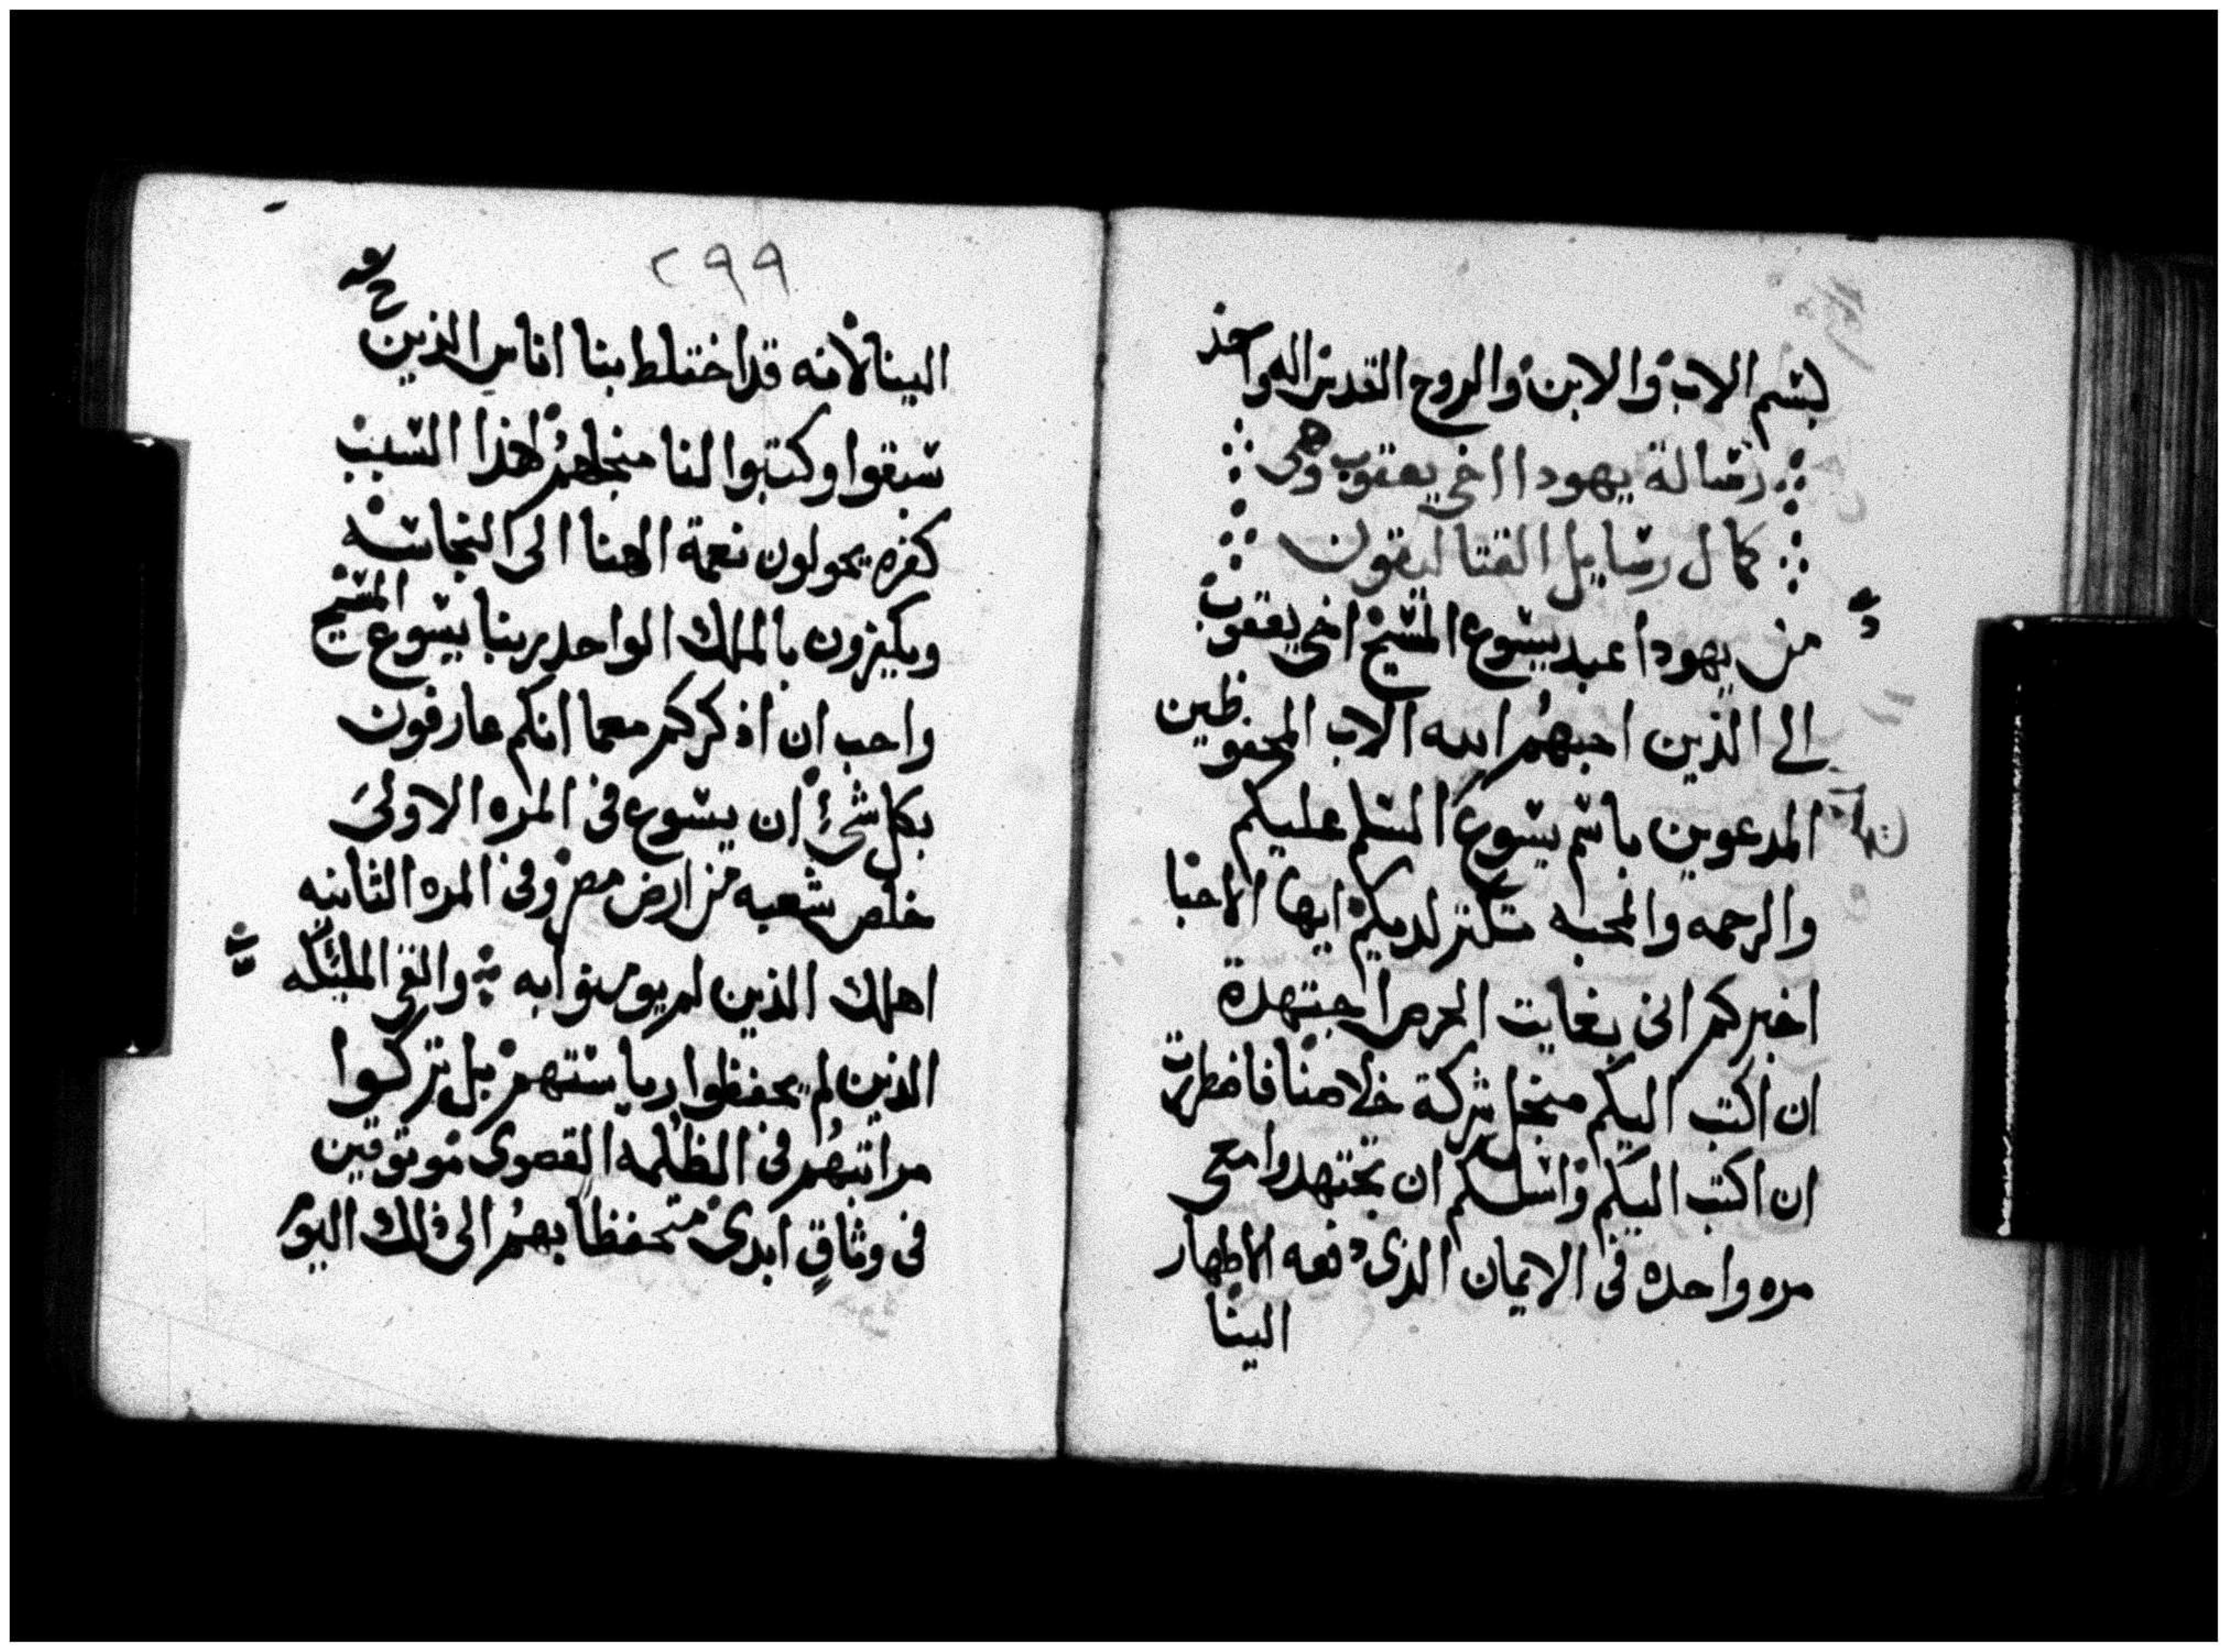 بسم الاب والابن والروح القدس اله واحد
رساله يهودا اخي يعقوب وهي
كمال رسايل القتاليقون
من يهودا عبد يسوع المسيح اخي يعقوب
الى الذين احبهم الله الاب المحفوظين
المدعوين باسم يسوع السلم عليكم
والرحمه والمحبه تكثر لديكم ايها الاحبا
اخبركم انى بغايت الحرص اجتهدة
ان اكتب اليكم منجل شركة خلاصنا فاضطررت
ان اكتب اليكم واسلكم ان تجتهدوا معي
مره واحده فى الايمان الذى دفعه الاطهار
الينا
٢٩٩
الينا لانه قد اختلط بنا اناس الذين
سبقوا وكتبوا لنا منجلهم لهذا السبب
كفره يحولون نعمة الهنا الى النجاسه
ويكفرون بالملك الواحد ربنا يسوع المسيح
واحب ان اذكركم معما انكم عارفون
بكل شئ ان يسوع فى المره الاولى
خلص شعبه من ارض مصر وفى المره الثانيه
اهلك الذين لم يومنوا به والفى الملئكه
الذين لم يحفظوا رياستهم بل تركوا
مراتبهم فى الظلمه القصوى موثوقين
فى وثاق ابدى متحفظا بهم الى ذلك اليوم